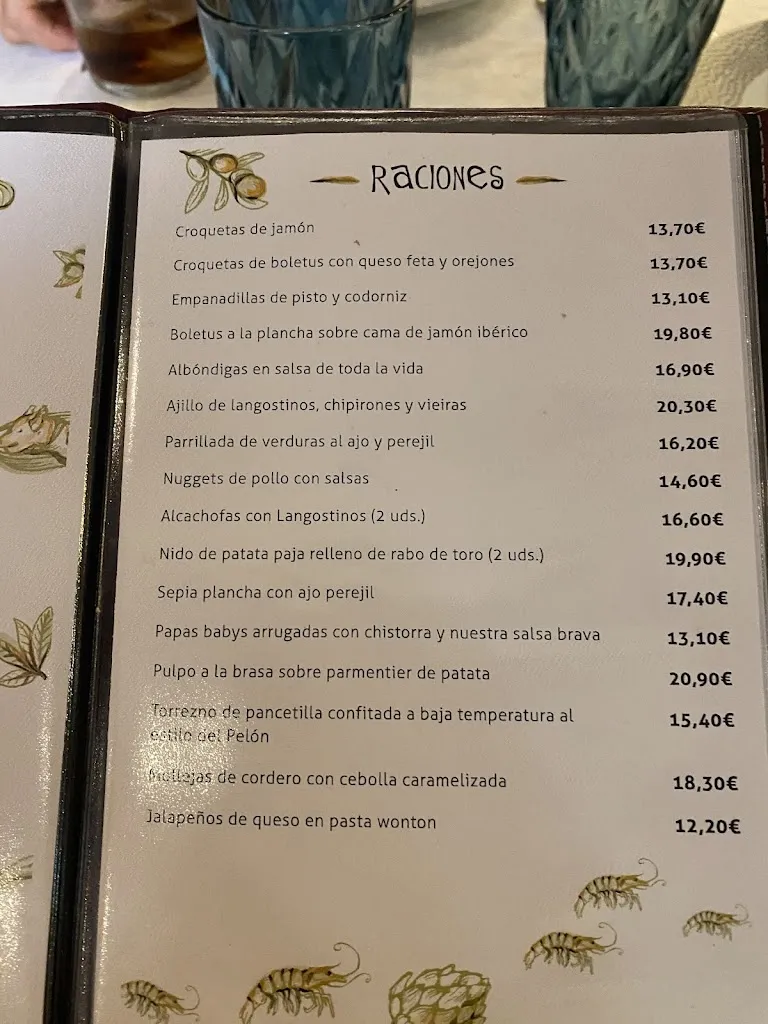 RACIONES
Croquetas de jamón 13,70€
Croquetas de boletus con queso feta y orejones 13,70€
Empanadillas de pisto y codorniz 13,10€
Boletus a la plancha sobre cama de jamón ibérico 19,80€
Albóndigas en salsa de toda la vida 16,90€
Ajillo de langostinos, chipirones y vieiras 20,30€
Parrillada de verduras al ajo y perejil 16,20€
Nuggets de pollo con salsas 14,60€
Alcachofas con Langostinos (2 uds.) 16,60€
Nido de patata paja relleno de rabo de toro (2 uds.) 19,90€
Sepia plancha con ajo perejil 17,40€
Papas babys arrugadas con chistorra y nuestra salsa brava 13,10€
Pulpo a la brasa sobre parmentier de patata 20,90€
Torrezno de pancetilla confitada a baja temperatura al 15,40€
estilo del Pelón
Mollejas de cordero con cebolla caramelizada 18,30€
Jalapeños de queso en pasta wonton 12,20€